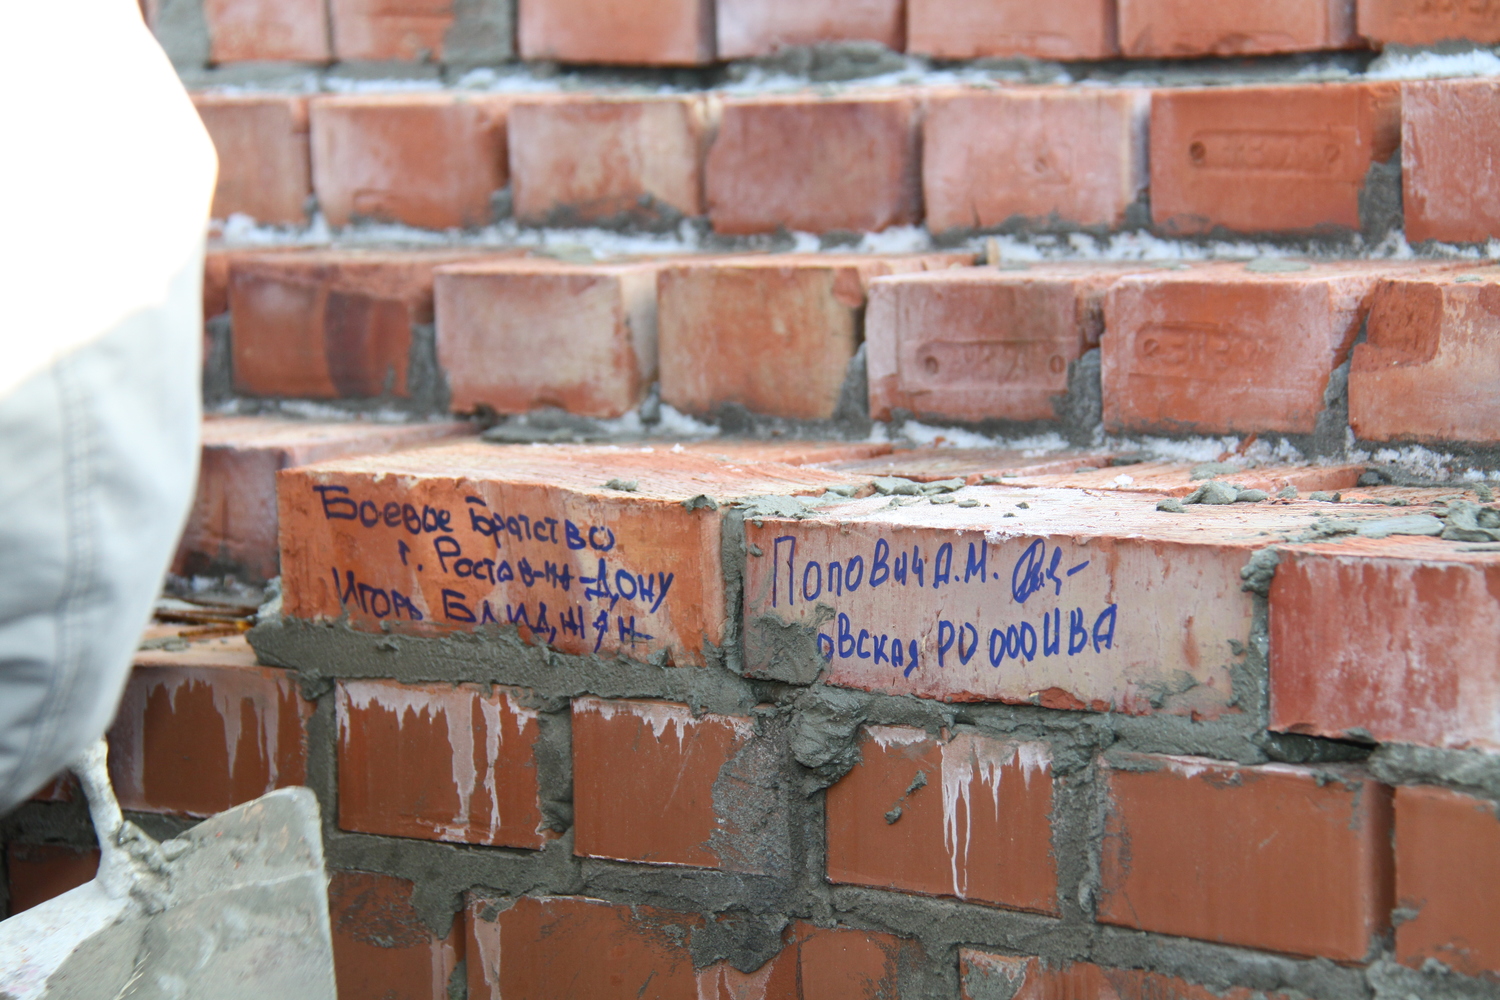 Боевое Братство
г. Ростов-на-Дону
Игорь Блиджян
Попович А.М.
овская РО ОООИВА